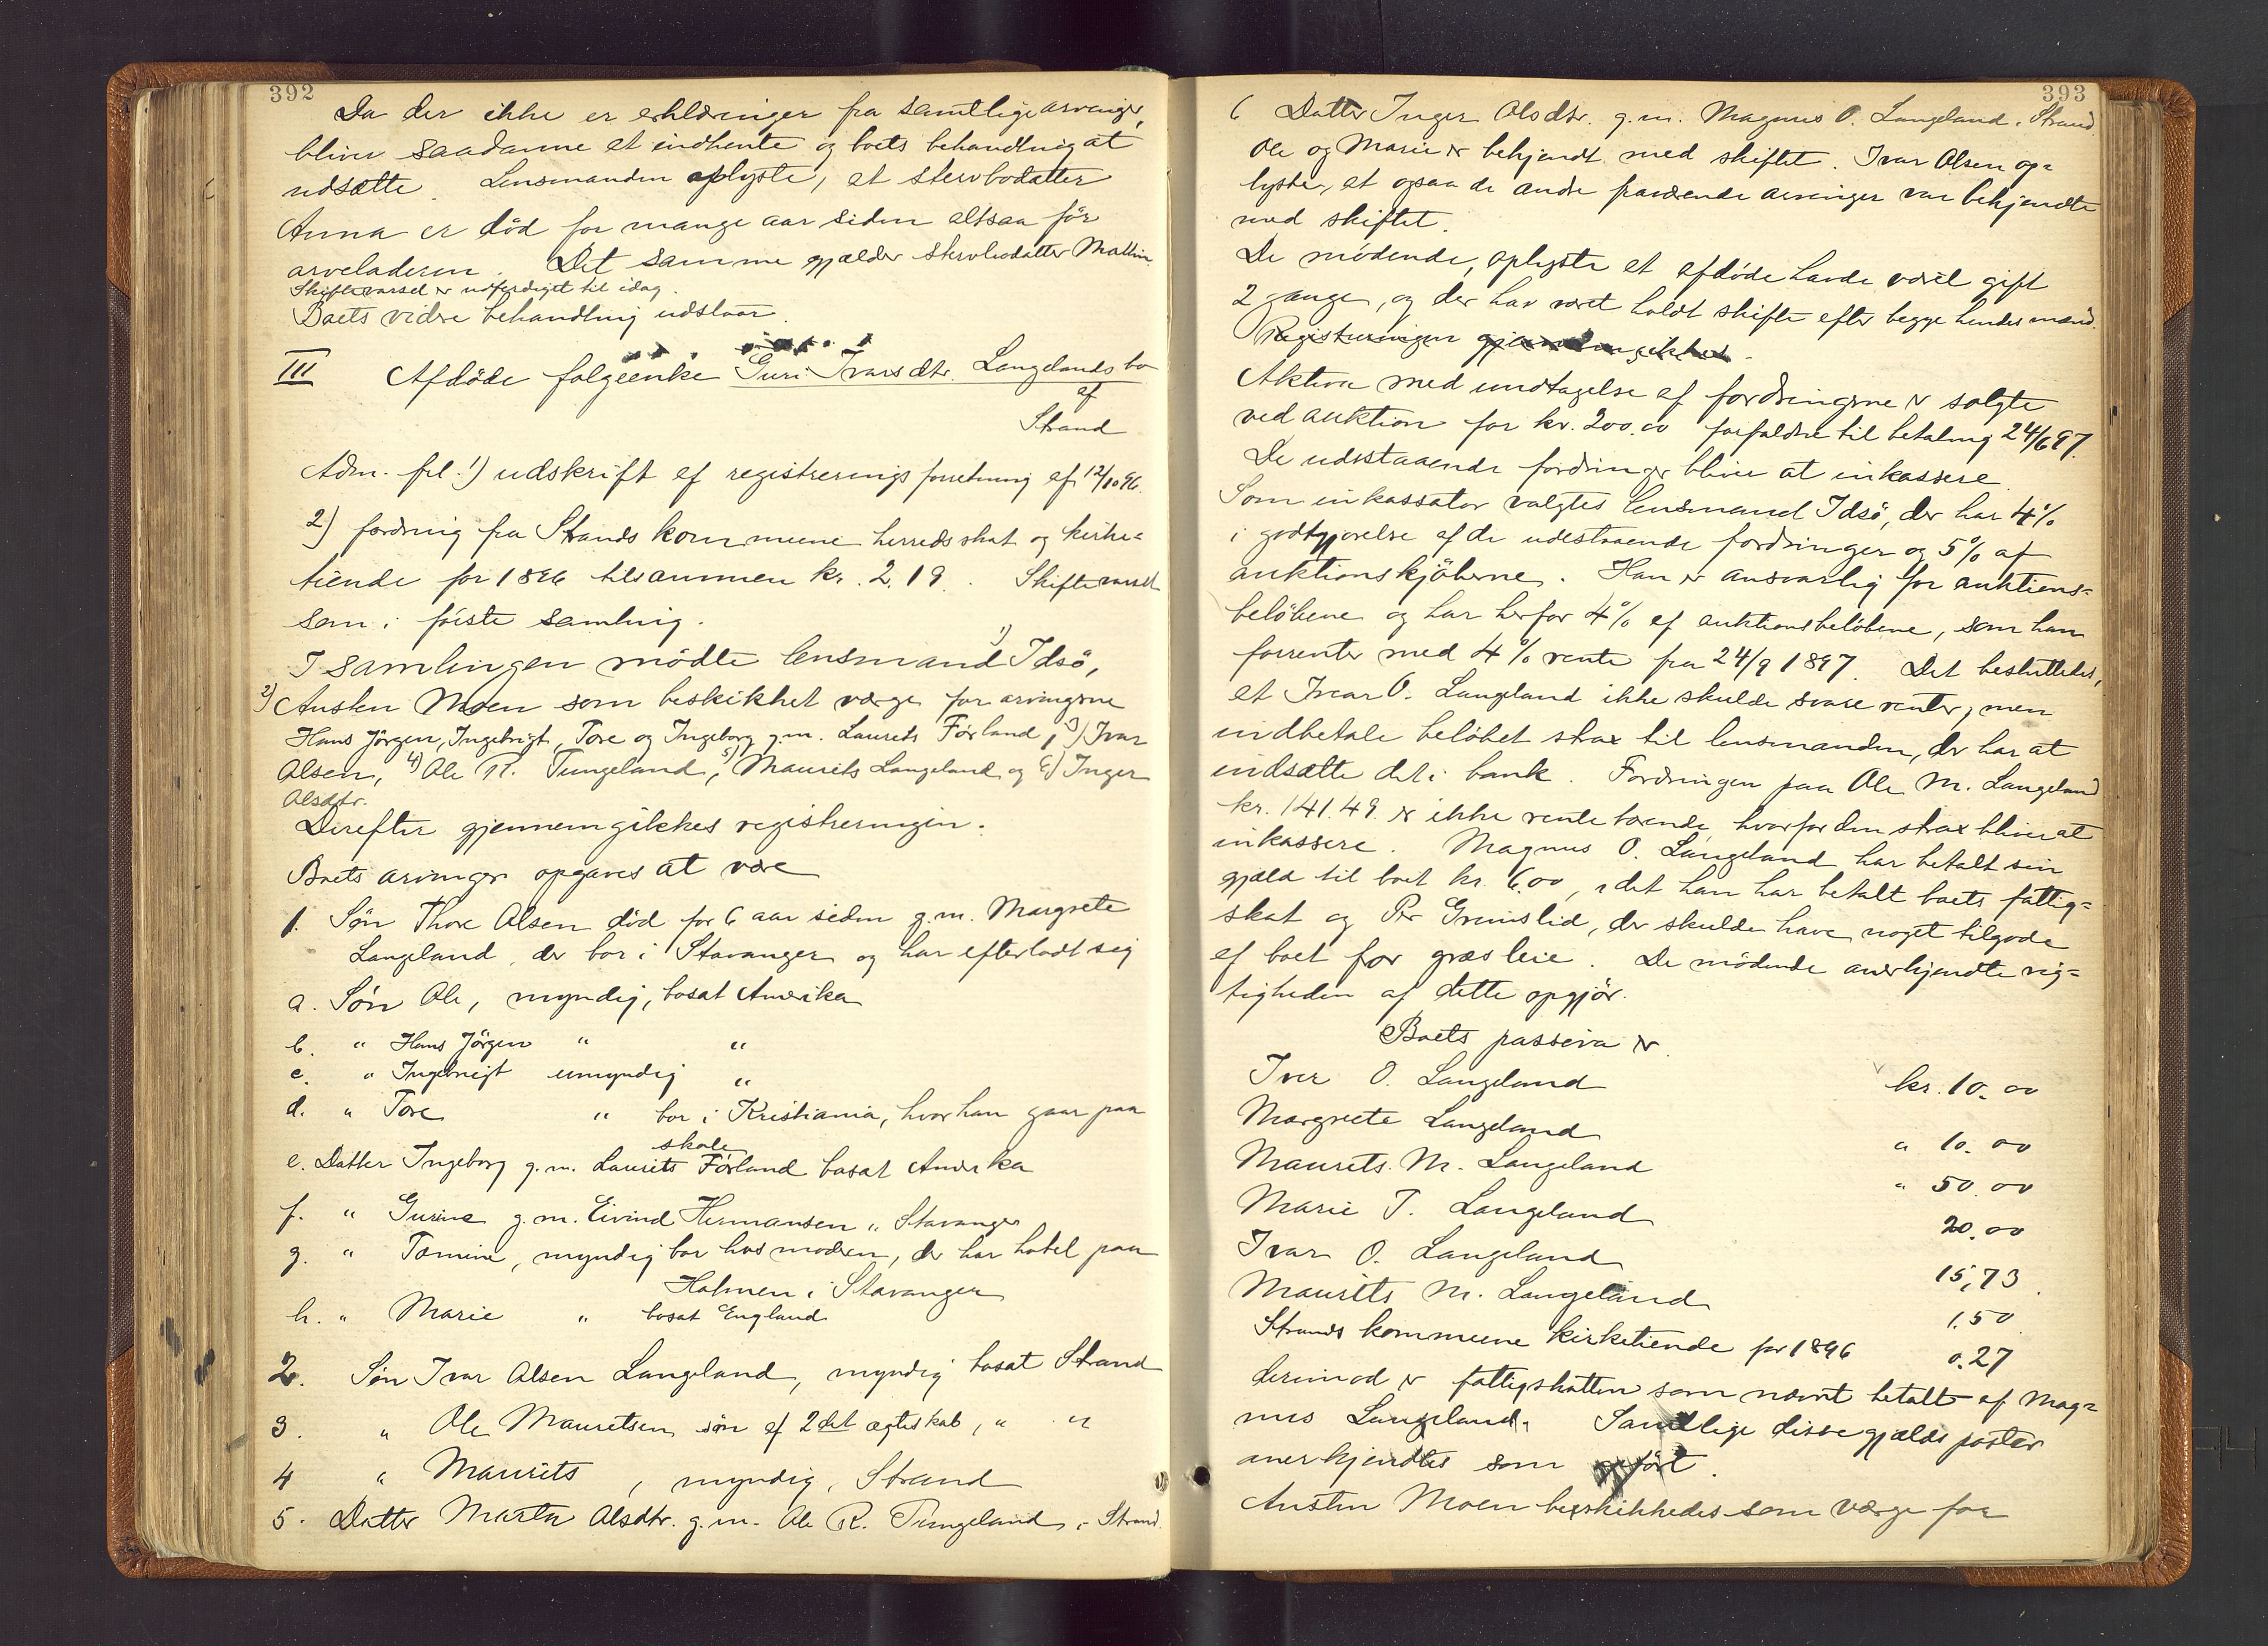 392
Da der ikke er erklæringer fra samtlige arvinger,
bliver saadanne at indhente og boets behandling at
udsætte. Lensmanden oplyste, at stervbodatter
Anna er död for mange aar siden altsaa för
arveladeren. Det samme gjælder stervbodatter
Skiftevarsel er udferdiget til idag.
Boets vidre behandling udstaar.
III Afdöde folgeenke Guri Ivarsdtr. Langelands bo
af
Strand
Adm. frl. 1) udskrift af registrerings forretning af 12/10 96.
2) fordring fra Strands kommune herredsskat og kirke=
tiende for 1896 tilsammen kr. 2.19. Skiftevarsel
som i förste samling.
I samlingen mödte lensmand 1) Idsö,
2) Austen Moen som beskikket værge for arvingerne
Hans Jörgen, Ingebrigt, Tore og Ingeborg g.m. Laurits Förland, 3) Ivar
Olsen, 4) Ole R. Tungeland, 5) Maurits Langeland og 6) Inger
Olsdtr.
Derefter gjennemgikkes registreringen.
Boets arvinger opgaves at være
1. Sön Thore Olsen död for 6 aar siden g.m. Margrete
Langeland, der bor i Stavanger og har efterladt sig
a. Sön Ole, myndig, bosat Amerika
b. " Hans Jörgen " "
c. " Ingebrigt umyndig "
d. " Tore " bor i Kristiania, hvor han gaar paa
skole
e. Datter Ingeborg g.m. Laurits Förland bosat Amerika
f. " Gurine g.m. Eivind Hermansen " Stavanger
g. " Tomine, myndig bor hos moderen, der har hotel paa
Holmen i Stavanger
h. " Marie " bosat England
2. Sön Ivar Olsen Langeland, myndig bosat Strand
3. " Ole Mauritsen sön af 2det ægteskab, " "
4 " Maurits, myndig, Strand
5. Datter Marta Olsdtr. g.m. Ole R. Tungeland, i Strand.
393
6 Datter Inger Olsdtr. g.m. Magnus O. Langeland, Strand.
Ole og Marie er bekjendt med skiftet. Ivar Olsen op=
lyste, at ogsaa de andre fraværende arvinger var bekjendte
med skiftet.
De mödende, oplyste at afdöde havde været gift
2 gange, og der har været holdt skifte efter begge hendes mænd.
Registreringen gjennemgikkes.
Aktiva med undtagelse af fordringerne er solgte
ved auktion for kr. 200.00 forfaldne til betaling 24/6 97.
De udestaaende fordringer bliver at inkassere.
Som inkassator valgtes lensmand Idsö, der har 4%
i godtgjorelse af de udestaaende fordringer og 5% af
auktionskjöberne. Han er ansvarlig for auktions=
belöbene og har herfor 4% af auktionsbelöbene, som han
forrenter med 4% rente fra 24/9 1897. Det besluttedes,
at Ivar O. Langeland ikke skulde svare renter, men
indbetale belöbet strax til lensmanden, der har at
indsætte det i bank. Fordringen paa Ole M. Langeland
kr. 141.49. er ikke rentebærende, hvorfor den strax bliver at
inkassere. Magnus O. Langeland har betalt sin
gjæld til boet kr. 6.00, idet han har betalt boets fattig=
skat og Per Grimslid, der skulde have noget tilgode
af boet for græsleie. De mödende anerkjendte rig=
tigheden af dette opgjör.
Boets passiva er
Iver O. Langeland kr. 10.00
Margrete Langeland " 10.00
Maurits M. Langeland " 50.00
Marie T. Langeland 20.00
Ivar O. Langeland 15,73
Maurits M. Langeland 1.50
Strands kommune kirketiende for 1896 0.27
derimod er fattigskatten som nævnt betalt af Mag=
nus Langeland. Samtlige disse gjældsposter
anerkjendtes som opfört.
Austen Moen beskikkedes som værge for